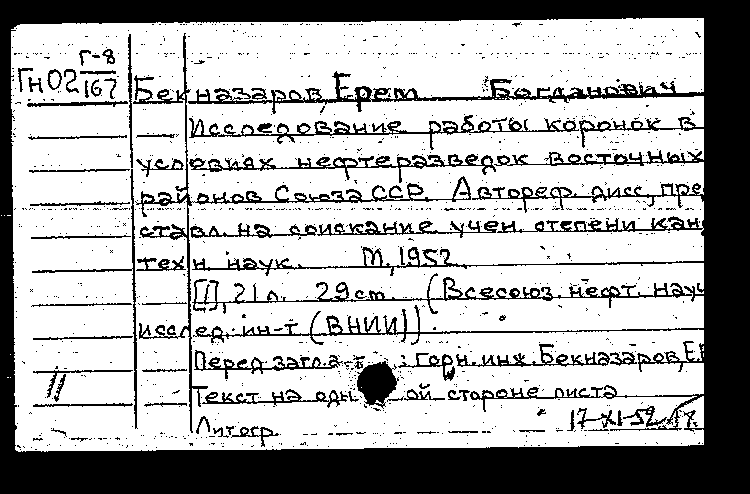 Г-8
Гн02 167
Бекназаров, Ерем Богданович
Исследование работы коронок в
условиях нефтеразведок восточных
районов Союза ССР. Автореф. дисс., пре
ставл. на соискание учен. степени кан
техн. наук. М., 1952.
[I], 21 л. 29 см. (Всесоюз. нефт. науч
исслед. ин-т (ВНИИ)).
Перед загл. : горн. инж. Бекназаров, Е
Текст на одн ой стороне листа.
Литогр. 17-XI-52